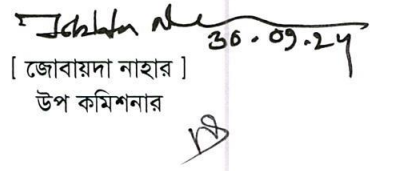 30.09.24
[ জোবায়দা নাহার ]
উপ কমিশনার